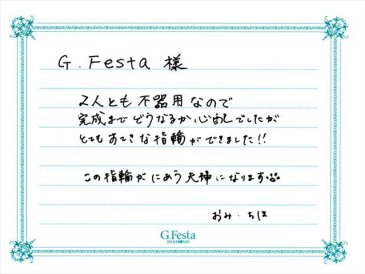 G.Festa 様
2人とも不器用なので
完成までどうなるか心配でしたが
とてもすてきな指輪ができました!!
この指輪がにあう夫婦になります
おみ・ちほ
G.Festa
DIAMOND